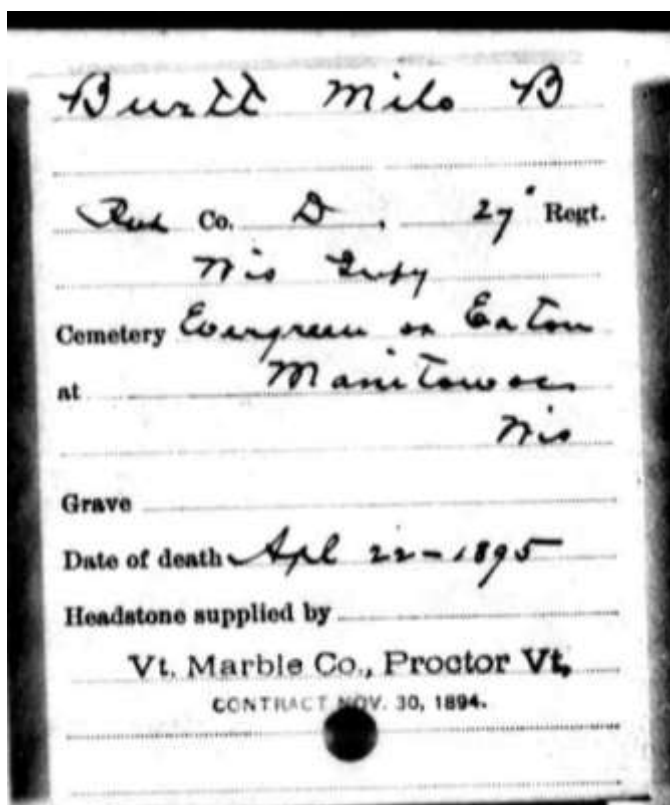 Burtt Milo B
Co. D, 27" Regt.
Wis Infy
Cemetery Evergreen or Eaton
at Manitowoc
Wis
Grave
Date of death Apl 22-1895
Headstone supplied by
Vt. Marble Co., Proctor Vt,
CONTRACT NOV. 30, 1894.